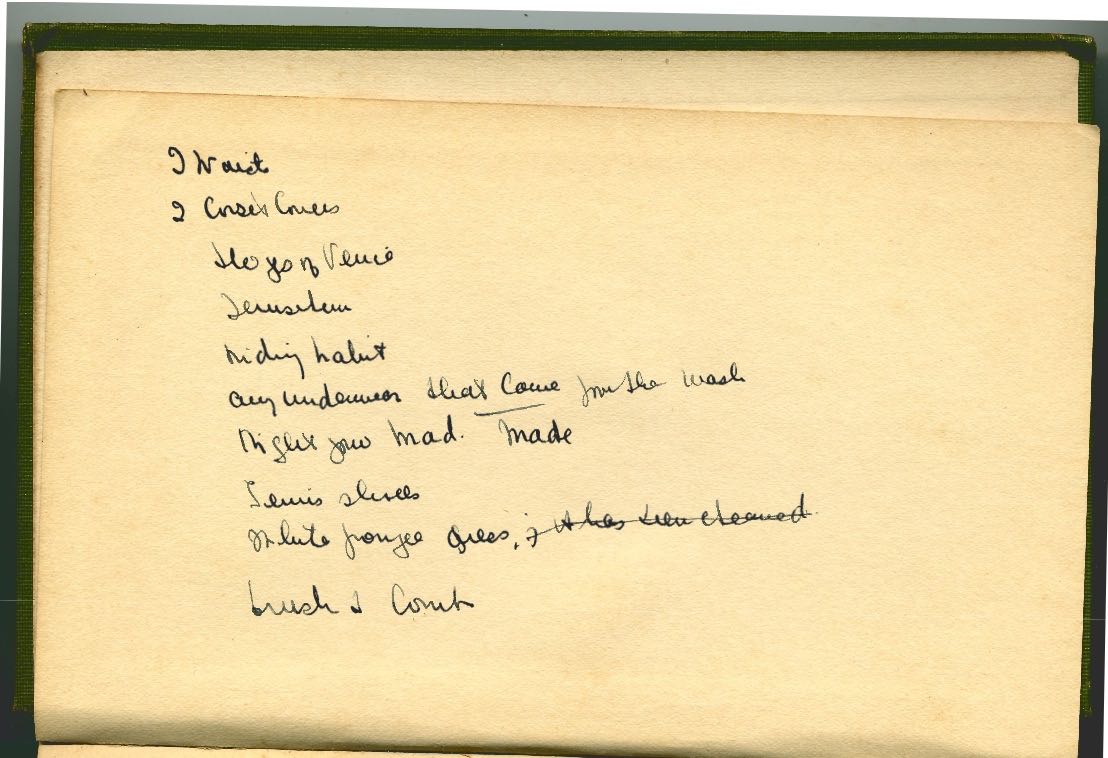 2 Waists
2 Corset Covers
Stoys of Venice
Jerusalem
riding habit
any underwear that Came from the wash
Night gow Mad. Made
Tennis shoes
White pongee dress, if it has been cleaned
brush & Comb